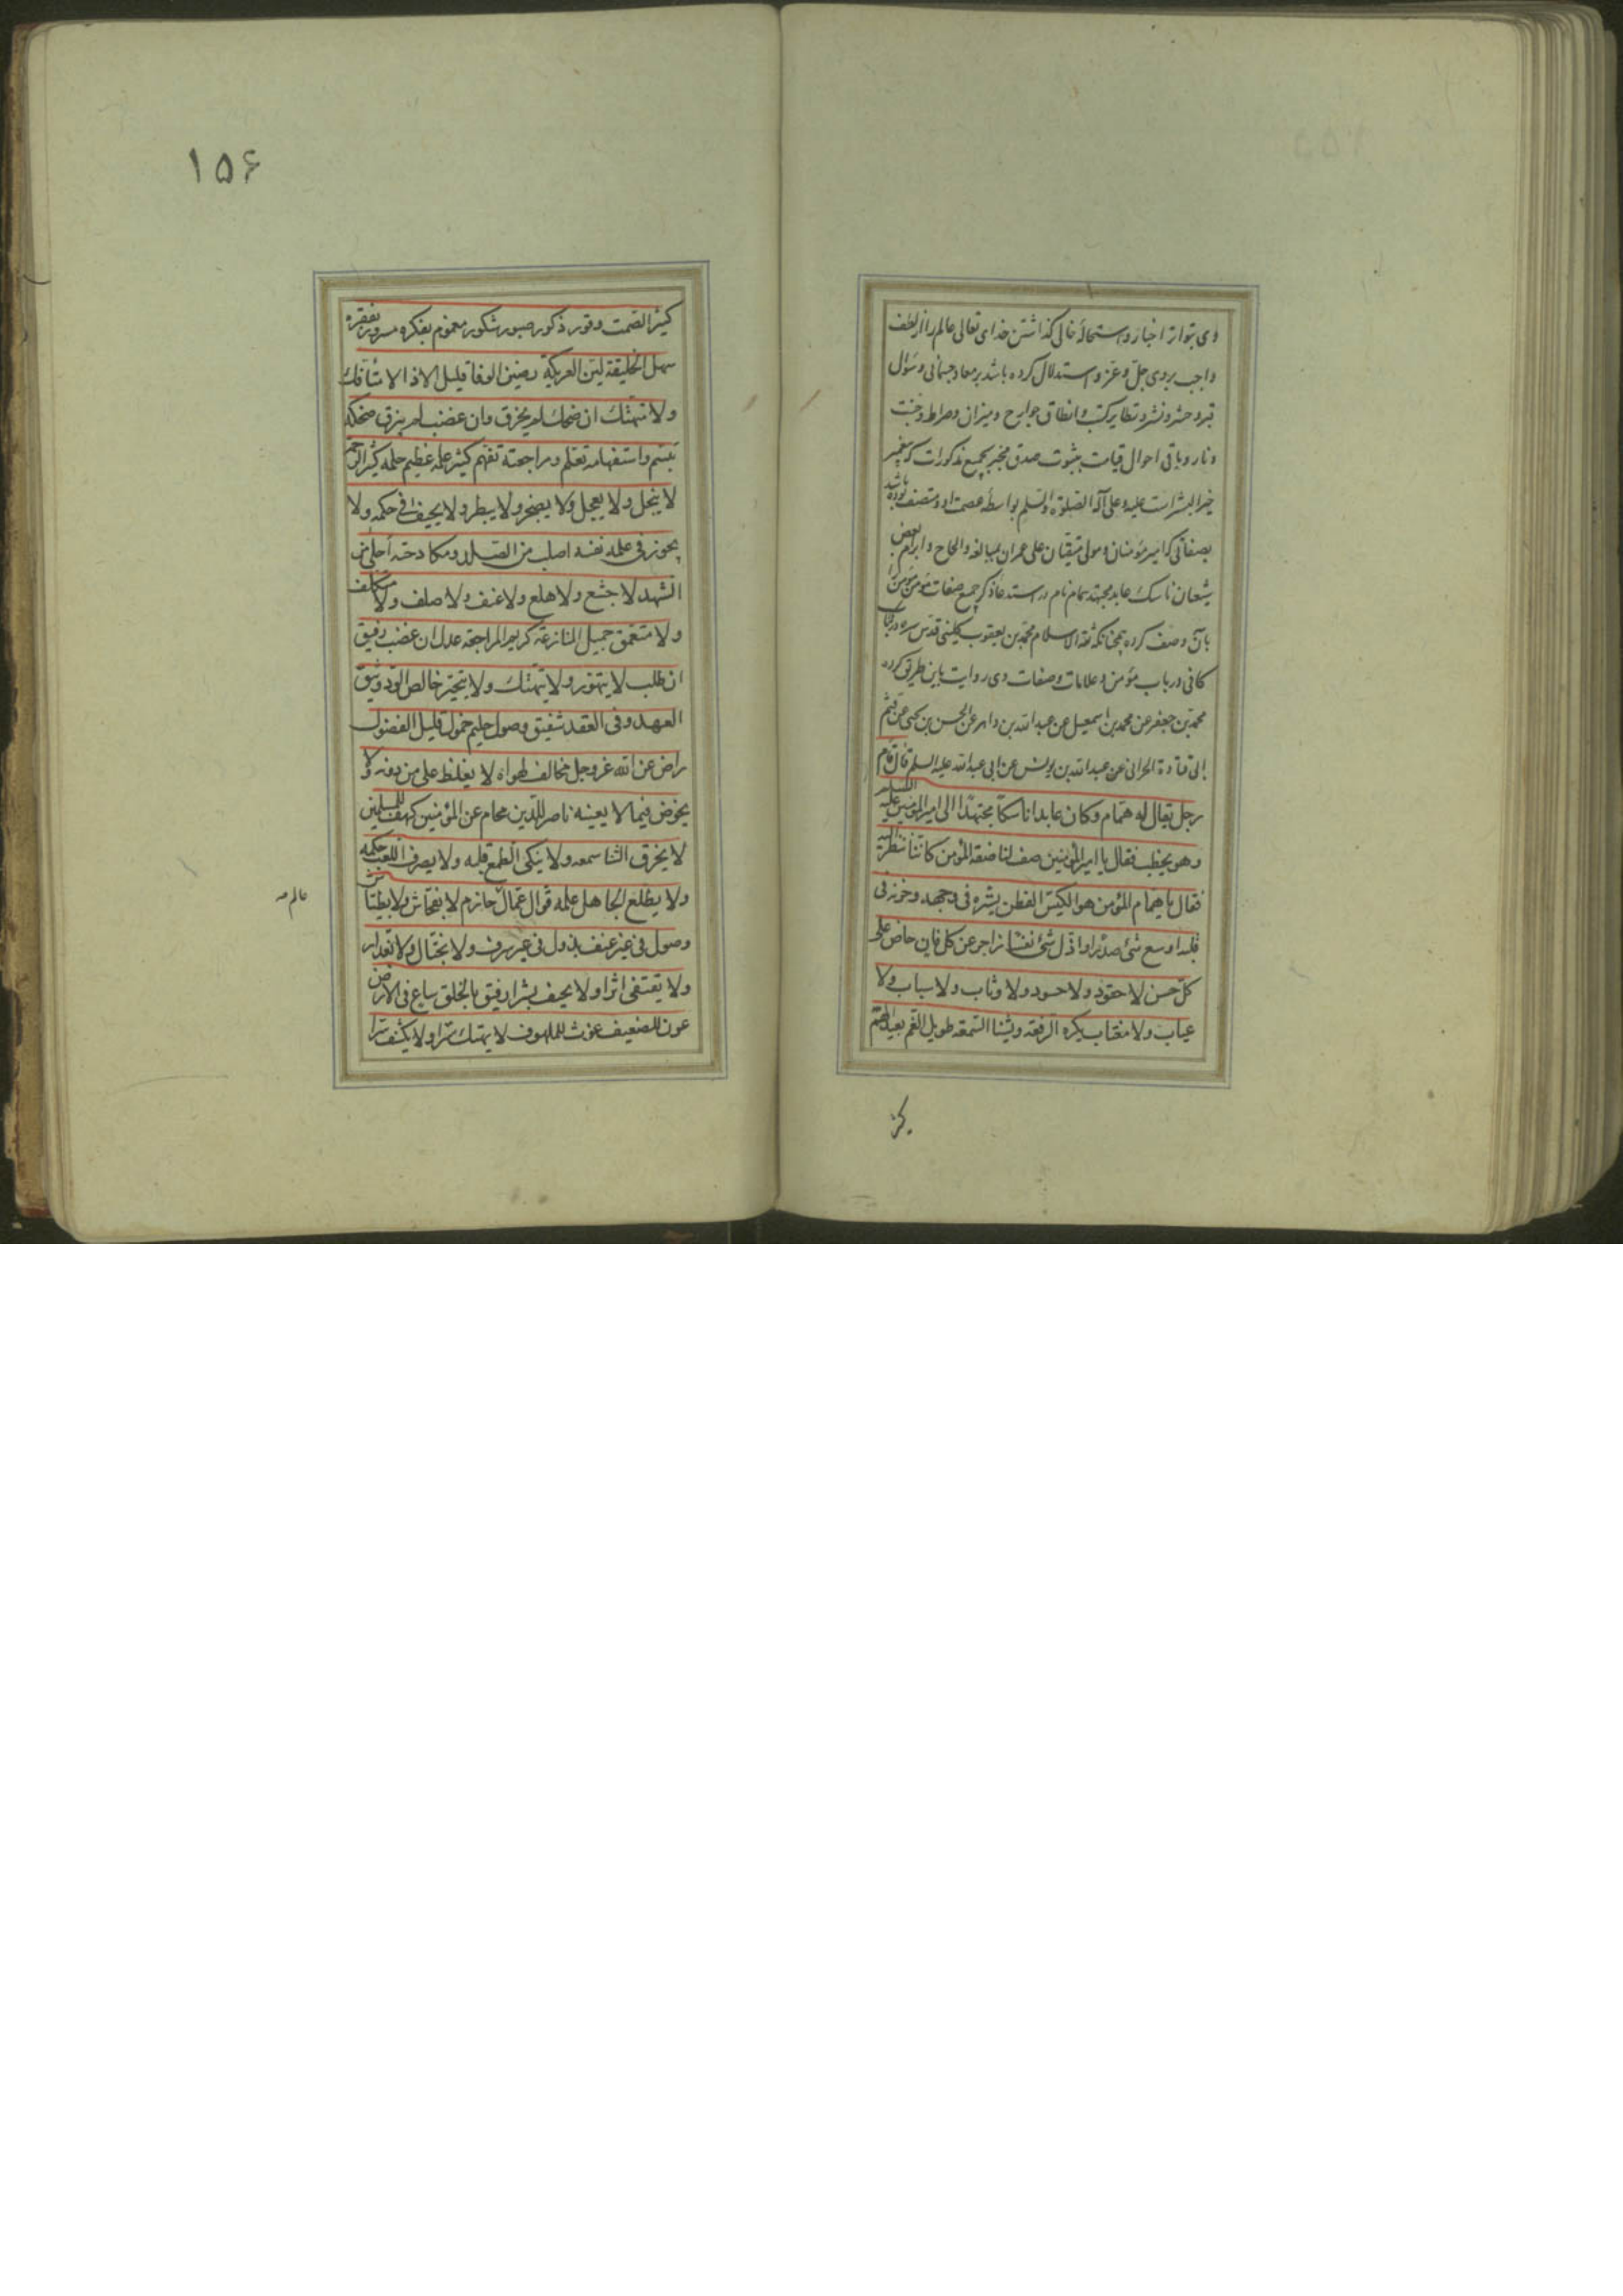 وی بتواتر اخبار و استحالهٔ خالی گذاشتن خدای تعالی عالم را از لطف
واجب بر وی جل و عز و استدلال کرده باشد بر معاد جسمانی و سؤال
قبر و حشر و نشر و تطایر کتب و انطاق جوارح و میزان و صراط و جنت
و نار و باقی احوال قیامت بثبوت صدق مخبر بجمیع مذکورات که پیغمبر
خیر البشر است علیه و علی آله الصلوة و السلم بواسطهٔ عصمت او و متصف بوده باشد
بصفاتی که امیر مؤمنان و مولی متقیان علی عمران بمبالغه و الحاح و ابرام بعض
شیعان ناسک عابد مجتهد همام نام در استدعاء ذکر جمیع صفات مؤمن مؤمن را
بآن وصف کرده چنانکه ثقة الاسلام محمد بن یعقوب کلینی قدس سره در کتاب
کافی در باب مؤمن و علامات و صفات وی روایت باین طریق کرده
محمد بن جعفر عن محمد بن اسمعیل عن عبد الله بن داهر عن الحسن بن یحیی عن قثم
ابی قتادة الحرانی عن عبد الله بن یونس عن ابی عبد الله علیه السلم قال قام
رجل یقال له همام و کان عابدا ناسکا مجتهدا الی امیر المؤمنین علیه السلام
و هو یخطب فقال یا امیر المؤمنین صف لنا صفة المؤمن کاننا ننظر الیه
فقال یا همام المؤمن هو الکیس الفطن بشره فی وجهه و حزنه فی
قلبه اوسع شئ صدرا و اذل شئ نفسا زاجر عن کل فان حاض علی
کل حسن لا حقود و لا حسود و لا وثاب و لا سباب و لا
عیاب و لا مغتاب یکره الرفعة و یشنا السمعة طویل الغم بعید الهم
کثیر
۱۵۶
کثیر الصمت وقور ذکور صبور شکور مغموم بفکره مسرور بفقره
سهل الخلیقة لین العریکة رصین الوفا قلیل الاذا لا متافك
و لا متهتك ان ضحك لم یخرق و ان غضب لم ینزق ضحکه
تبسم و استفهامه تعلم و مراجعته تفهم کثیر علمه عظیم حلمه کثیر الرحم
لا یبخل و لا یعجل و لا یضجر و لا یبطر و لا یحیف فی حکمه و لا
یجوز فی علمه نفسه اصلب من الصلد و مکادحته احلی من
الشهد لا جشع و لا هلع و لا عنف و لا صلف و لا متکلف
و لا متعمق جمیل المنازعة کریم المراجعة عدل ان غضب رفیق
ان طلب لا یتهور و لا یتهتك و لا یتجبر خالص الود وثیق
العهد وفی العقد شفیق وصول حلیم حمول قلیل الفضول
راض عن الله عز و جل مخالف لهواه لا یغلظ علی من دونه و لا
یخوض فیما لا یعینه ناصر للدین محام عن المؤمنین کهف للمسلمین
لا یخرق الثنا سمعه و لا ینکی الطمع قلبه و لا یصرف اللعب حکمه
و لا یطلع الجاهل علمه قوال عمال حازم لا بفحاش و لا بطیاش
عالم صه
وصول فی غیر عنف بذول فی غیر سرف و لا بختال و لا بغدار
و لا یقتفی اثرا و لا یحیف بشرا رفیق بالخلق ساع فی الارض
عون للضعیف غوث للملهوف لا یهتك سترا و لا یکشف سرا